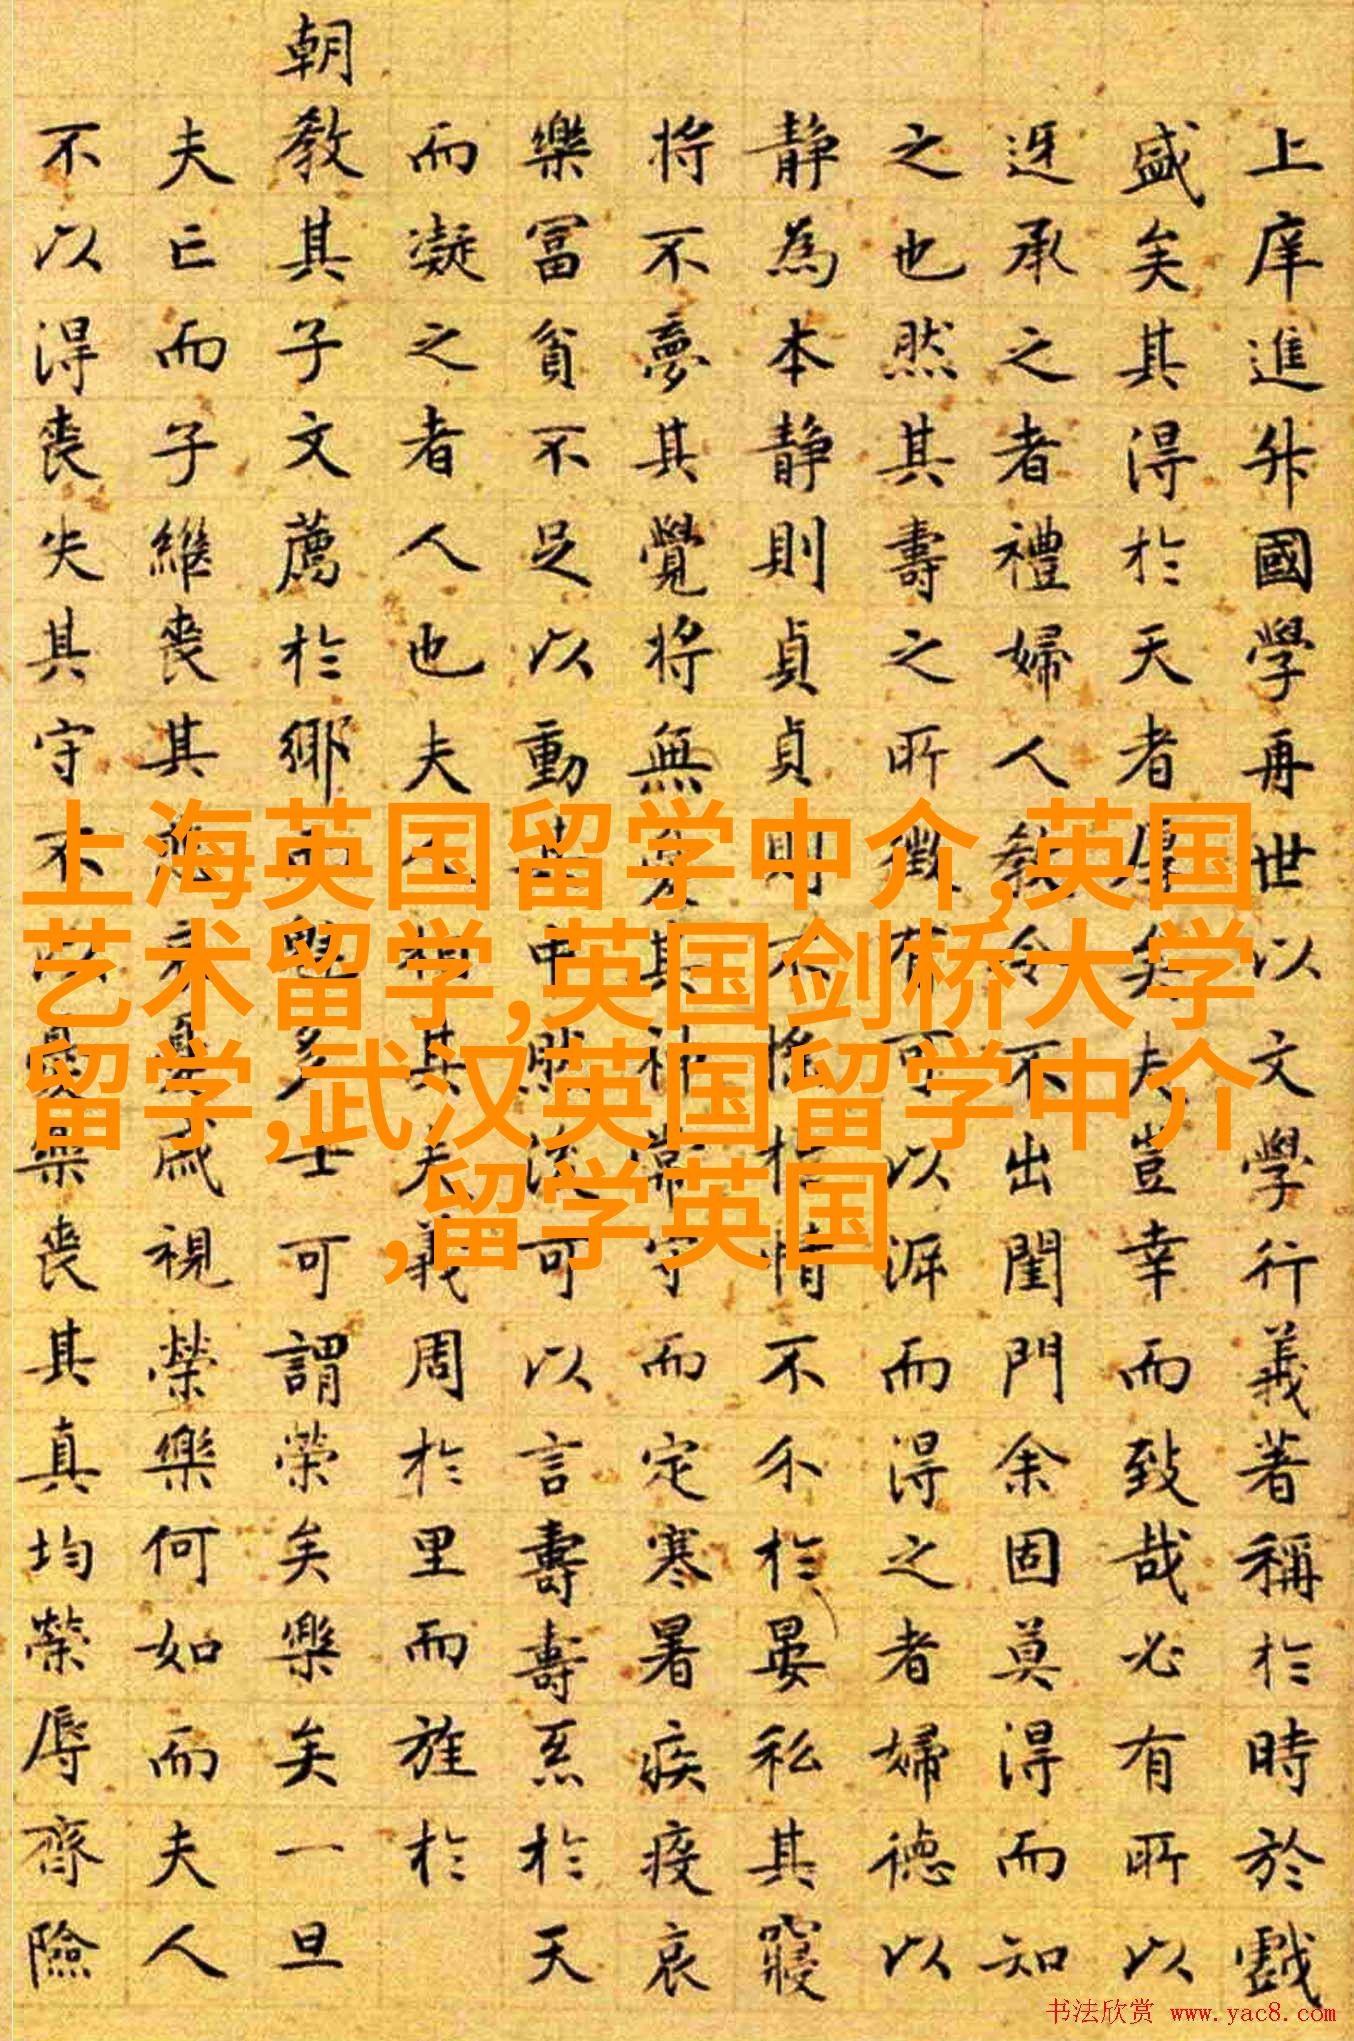 上庠進升國學再世以文學行義著稱於時於戲
盛矣其得於天者厚矣夫豈幸而致哉必有所以
迓承之者禮婦人教令不出閨門余固莫得而知
之也然其壽之所徵有可以而得之者婦德以
静為本静則貞貞則不情不於晏私其寢
将不夢其覺将無其神常守而定寒暑疾疫哀
樂冨貧不足以動其中然可以言壽壽系於天
而凝之者人也夫人相其夫義周於里而旌於
朝教其子文薦於鄉而魁多士可謂榮矣樂矣一旦
夫亡而子繼喪其戚視榮樂何如而夫人
不以得喪失其守不以憂樂喪其真均榮辱齊險
上海英国留学中介,英国
艺术留学,英国剑桥大学
留学,武汉英国留学中介
,留学英国
书法欣赏 www.yac8.com